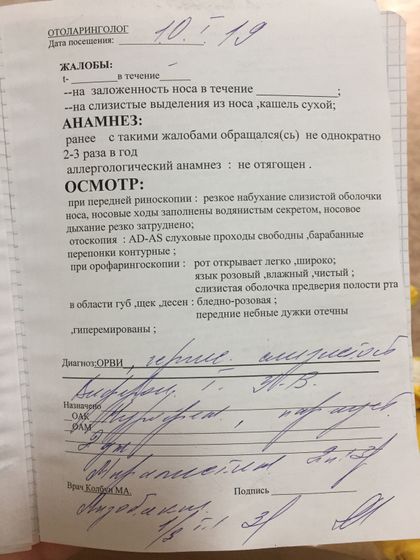 ОТОЛАРИНГОЛОГ
Дата посещения: 10. I 19
ЖАЛОБЫ: -
t- ________в течение_____
--на заложенность носа в течение ____________;
--на слизистые выделения из носа ,кашель сухой;
АНАМНЕЗ:
ранее с такими жалобами обращался(сь) не однократно
2-3 раза в год
аллергологический анамнез : не отягощен .
ОСМОТР:
при передней риноскопии : резкое набухание слизистой оболочки
носа, носовые ходы заполнены водянистым секретом, носовое
дыхание резко затруднено;
отоскопия : AD-AS слуховые проходы свободны ,барабанные
перепонки контурные ;
при орофарингоскопии : рот открывает легко ,широко;
язык розовый ,влажный ,чистый ;
слизистая оболочка предверия полости рта
в области губ ,щек ,десен : бледно-розовая ;
передние небные дужки отечны
,гиперемированы ;
Диагноз:ОРВИ, герпес слизистой
Виферон
Назначено Нурофен,
ОАК
ОАМ
Мирамистин
Врач Колбун МА. Подпись
1/3